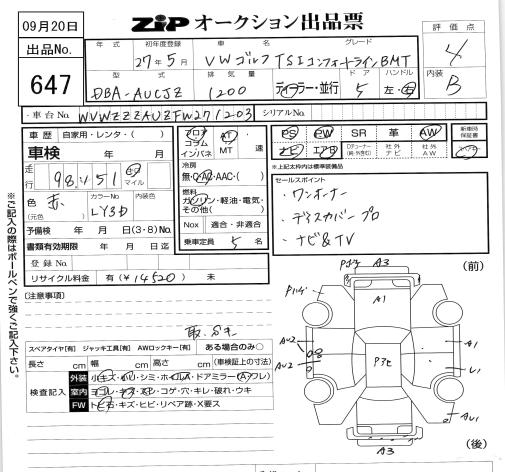 09月20日
ZIP オークション出品票
出品No.
647
年式 初年度登録 車名 グレード
27年5月 VWゴルフTSIコンフォートラインBMT
型式 排気量 ドア ハンドル
DBA-AUCJZ 1200 ディーラー・並行 5 左・右
評価点
4
内装
B
車台No. WVWZZZAUZFW271203 シリアルNo.
車歴 自家用・レンタ・( )
車検 年 月
走行 98,451 キロ マイル
色 赤 (元色) カラーNo LY3D
予備検 年 月 日(3・8)No.
書類有効期限 年 月 日迄
登録No.
リサイクル料金 有(¥14520) 未
フロア コラム インパネ AT MT 速
冷房
無・C・AC・AAC・( )
燃料
ガソリン・軽油・電気・その他( )
Nox 適合・非適合
乗車定員 5 名
PS PW SR 革 AW
ナビ エアB Dチューナー(純・外含む) 社外ナビ 社外AW
新車時保証書
*上記太枠内は標準装備品
セールスポイント
・ワンオーナー
・ディスカバープロ
・ナビ&TV
※ご記入の際はボールペンで強くご記入下さい。
[注意事項]
取、gき
スペアタイヤ[有] ジャッキ工具[有] AWロックキー[有] ある場合のみ○
長さ cm 幅 cm 高さ cm (車検証上の寸法)
検査記入
外装 小キズ・小凹・シミ・ホイルA・ドアミラー(A・ワレ)
室内 ヨゴレ・キズ・スレ・コゲ・穴・キレ・破れ・ウキ
FW トビ石・キズ・ヒビ・リペア跡・X要ス
(前)
A3
A1
Pアセ
AU2
AU2
A1
U1
AU1
A3
(後)